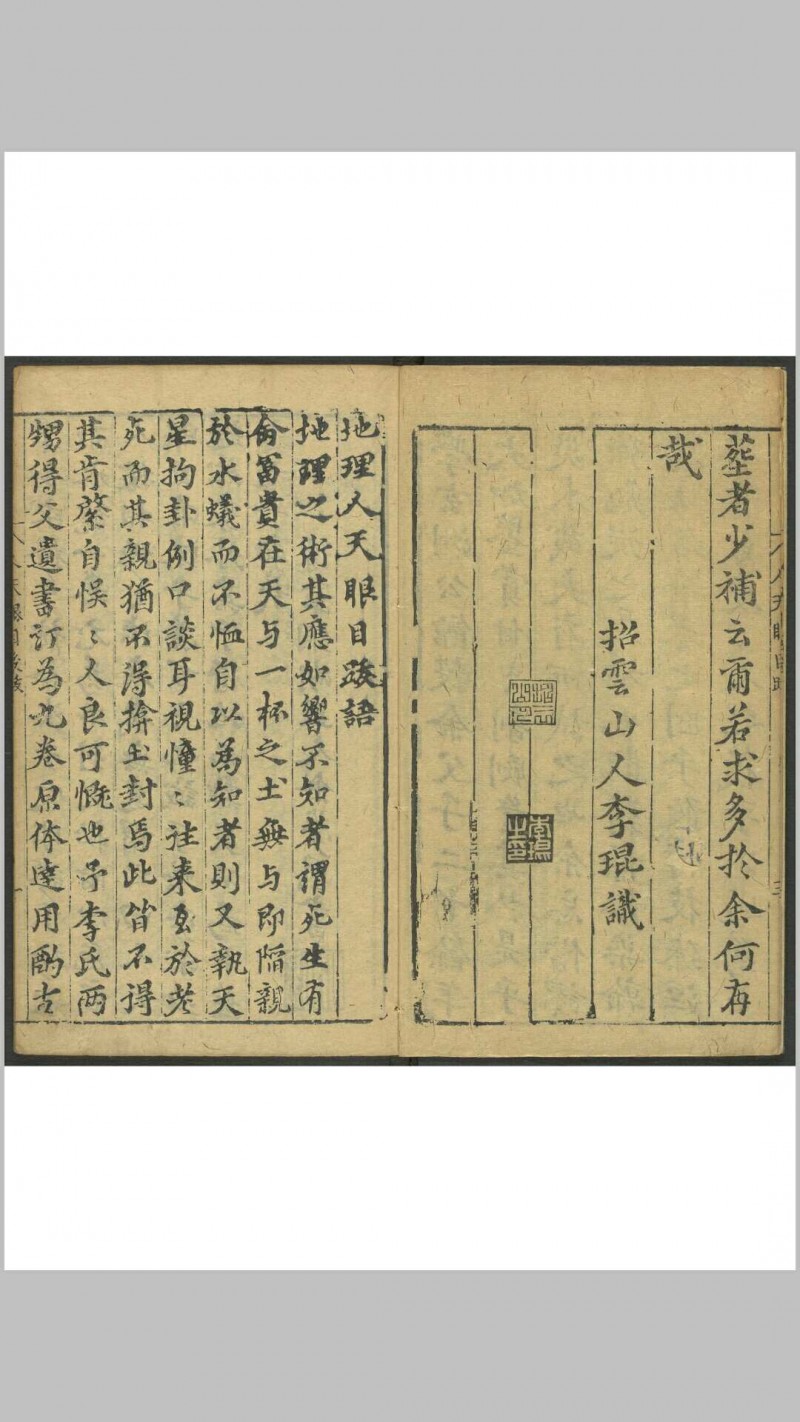 塟者少補云爾若求多於余何有
哉
招雲山人李琨識
地理人天眼目跋語
地理之術其應如響不知者謂死生有
命冨貴在天与一杯之土無与即陷親
於水蟻而不恤自以為知者則又執天
星拘卦例口談耳視憧〻往来至於老
死而其親猶不淂揜土封焉此皆不得
其肯綮自悮〻人良可慨也予李氏两
甥得父遺書訂為九卷原体達用酌古